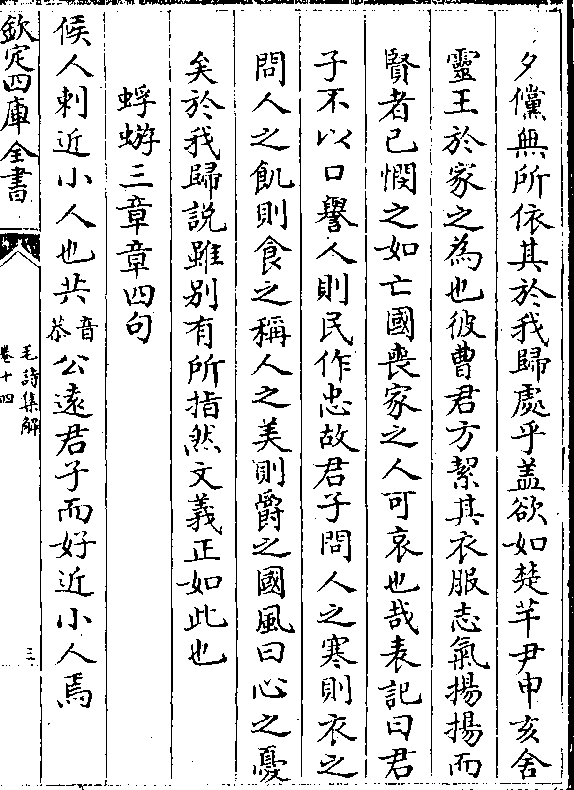 夕儻無所依其於我歸處乎盖欲如楚芊尹申亥舍
靈王於家之為也彼曹君方絜其衣服志氣揚揚而
賢者已憫之如亡國喪家之人可哀也哉表記曰君
子不以口譽人則民作忠故君子問人之寒則衣之
問人之飢則食之稱人之美則爵之國風曰心之憂
矣於我歸說雖别有所指然文義正如此也
蜉蝣三章章四句
候人刺近小人也共音恭公遠君子而好近小人焉
欽定四庫全書
毛詩集解
卷十四
三